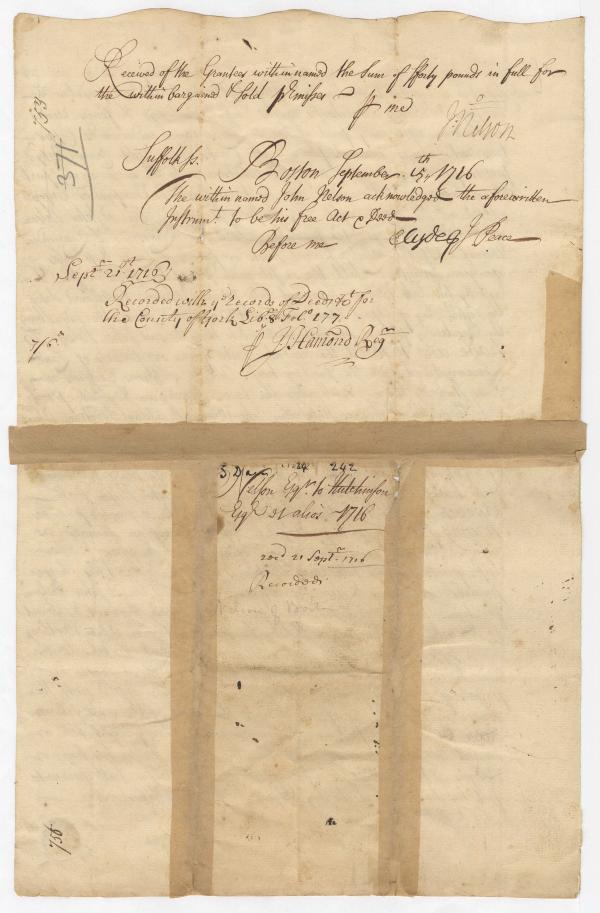 Received of the Grantees within named the Sum of fforty pounds in full for
the within bargained & Sold p'misses ~ p me
J:° Nelson
Suffolk ss. Boston September 15th 1716
The within named John Nelson acknowledged the aforewritten
Instrumt. to be his free Act & Deed
Before me J Peace
Septr 21st 1716
Recorded with ye Records of Deeds &c for
the County of York Lib.° 8 Fol.° 177
p J. Hamond Regr
7/6
371
733
S 242
Nelson Esqr. to Hutchinson
Esqr & alios. 1716
recd 21 Septr. 1716
Recorded
Nelson
734